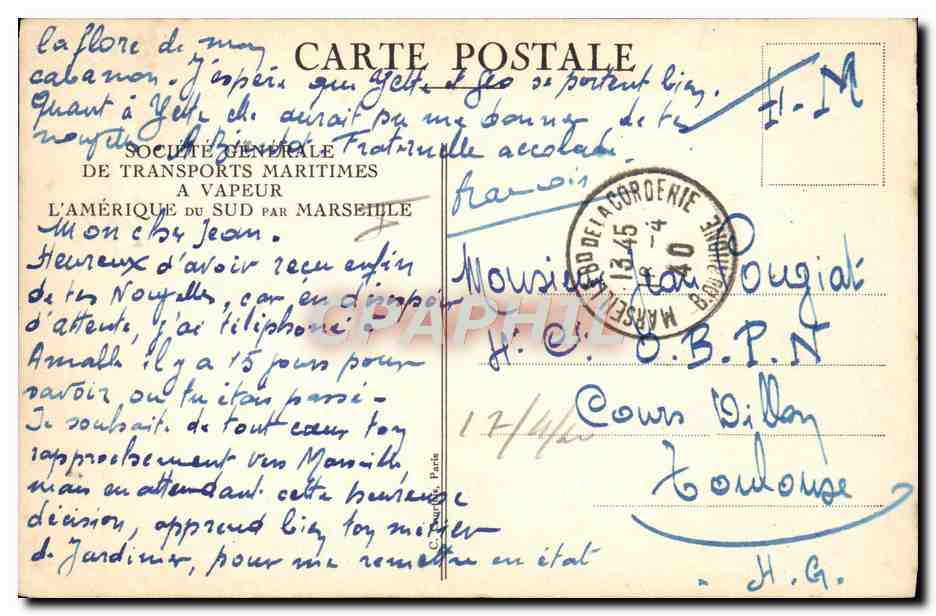 CARTE POSTALE
SOCIÉTÉ GÉNÉRALE
DE TRANSPORTS MARITIMES
A VAPEUR
L'AMÉRIQUE DU SUD PAR MARSEILLE
Mon cher Jean.
Heureux d'avoir reçu enfin
de tes Nouvelles, car en désespoir
d'attente, j'ai téléphoné à
il y a 15 jours pour
savoir où tu étais passé -
Je souhaite de tout cœur ton
rapprochement vers Marseille,
mais en attendant cette heureuse
décision, apprend bien ton métier
de Jardinier, pour me remettre en état
la flore de mon
cabanon. J'espère que Yette et Géo se portent bien.
Quant à Yette elle aurait pu me donner de tes
nouvelles. Fraternelle accolade.
François
F.M
MARSEILLE BD DE LA CORDERIE
13 45
8 -4
40
B. DU RHONE
Monsieur Jean Pougiat
O.B.P.N
Cours Dillon
Toulouse
H.G.
17/4/40
C. Paris
CPAPHIL